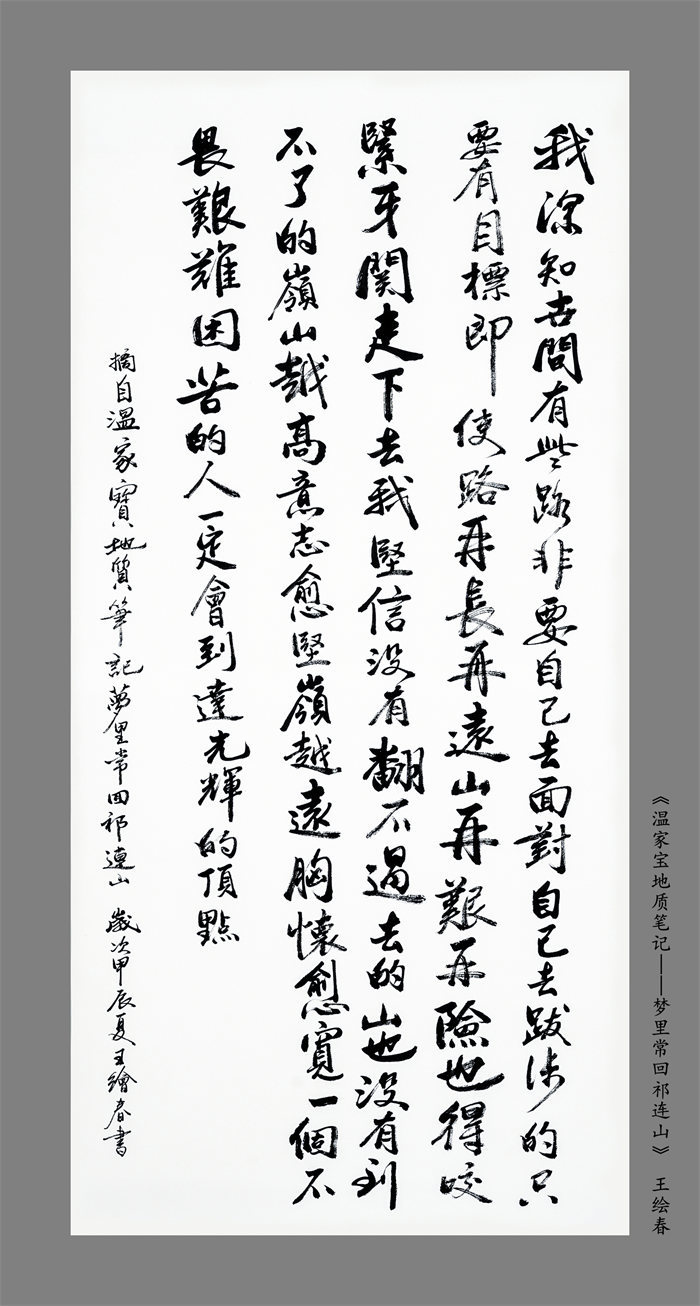 我深知世間有些路非要自己去面對自己去跋涉的只
要有目標即使路再長再遠山再艱再險也得咬
緊牙關走下去我堅信没有翻不過去的山也没有到
不了的嶺山越高意志愈堅嶺越遠胸懷愈寬一個不
畏艱難困苦的人一定會到達光輝的頂點
摘自溫家寶地質筆記夢里常回祁連山 歲次甲辰夏王繪春書
《温家宝地质笔记——梦里常回祁连山》 王绘春